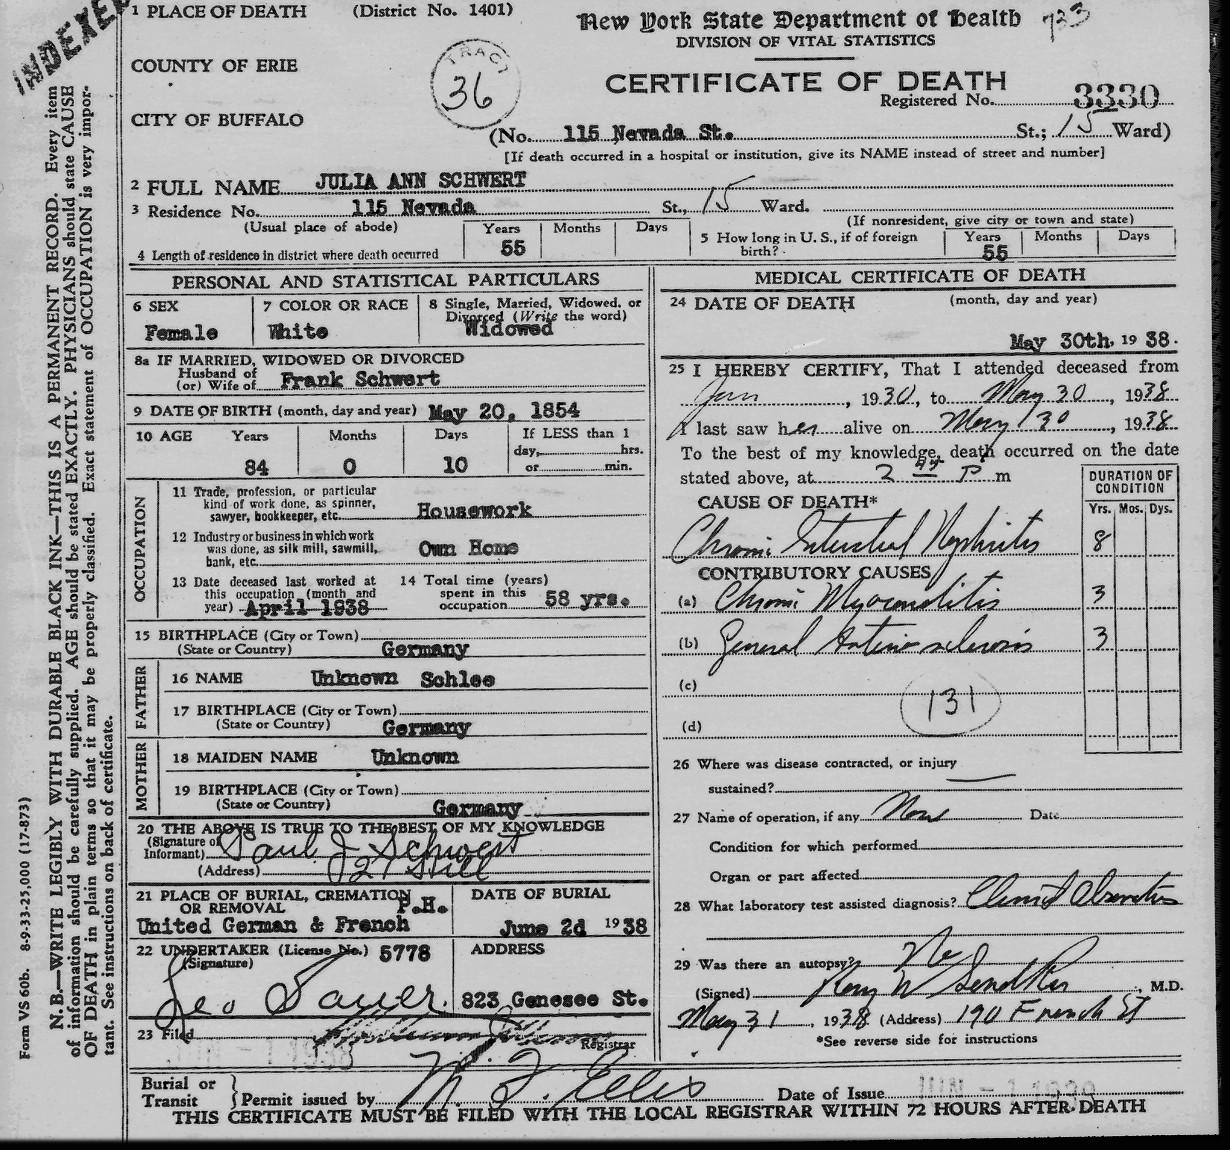 INDEXED
1 PLACE OF DEATH (District No. 1401)
New York State Department of Health 733
DIVISION OF VITAL STATISTICS
COUNTY OF ERIE
TRACT
36
CERTIFICATE OF DEATH
Registered No. 3330
CITY OF BUFFALO
(No. 115 Nevada St. St.; 15 Ward)
[If death occurred in a hospital or institution, give its NAME instead of street and number]
2 FULL NAME JULIA ANN SCHWERT
3 Residence No. 115 Nevada St., 15 Ward.
(Usual place of abode) (If nonresident, give city or town and state)
4 Length of residence in district where death occurred Years 55 Months Days
5 How long in U. S., if of foreign birth? Years 55 Months Days
PERSONAL AND STATISTICAL PARTICULARS
6 SEX Female
7 COLOR OR RACE White
8 Single, Married, Widowed, or Divorced (Write the word) Widowed
8a IF MARRIED, WIDOWED OR DIVORCED
Husband of
(or) Wife of Frank Schwert
9 DATE OF BIRTH (month, day and year) May 20, 1854
10 AGE Years 84 Months 0 Days 10 If LESS than 1 day, hrs. or min.
OCCUPATION
11 Trade, profession, or particular kind of work done, as spinner, sawyer, bookkeeper, etc. Housework
12 Industry or business in which work was done, as silk mill, sawmill, bank, etc. Own Home
13 Date deceased last worked at this occupation (month and year) April 1938
14 Total time (years) spent in this occupation 58 yrs.
15 BIRTHPLACE (City or Town)
(State or Country) Germany
FATHER
16 NAME Unknown Schlee
17 BIRTHPLACE (City or Town)
(State or Country) Germany
MOTHER
18 MAIDEN NAME Unknown
19 BIRTHPLACE (City or Town)
(State or Country) Germany
20 THE ABOVE IS TRUE TO THE BEST OF MY KNOWLEDGE
(Signature of Informant) Paul J Schwert
(Address)
21 PLACE OF BURIAL, CREMATION OR REMOVAL P.H.
United German & French
DATE OF BURIAL
June 2d 1938
22 UNDERTAKER (License No.) 5778
(Signature)
Leo Sauer
ADDRESS
823 Genesee St.
23 Filed JUN - 1 1938
Registrar
MEDICAL CERTIFICATE OF DEATH
24 DATE OF DEATH (month, day and year)
May 30th, 1938.
25 I HEREBY CERTIFY, That I attended deceased from
Jan , 1930, to May 30 , 1938
I last saw her alive on May 30 , 1938
To the best of my knowledge, death occurred on the date
stated above, at 2 P m
CAUSE OF DEATH*
DURATION OF CONDITION
Yrs. Mos. Dys.
Chronic Interstitial Nephritis 8
CONTRIBUTORY CAUSES
(a) Chronic Myocarditis 3
(b) General Arteriosclerosis 3
(c)
131
(d)
26 Where was disease contracted, or injury
sustained?
27 Name of operation, if any None Date
Condition for which performed
Organ or part affected
28 What laboratory test assisted diagnosis?
29 Was there an autopsy? No
(Signed) , M.D.
May 31 , 1938 (Address) 190 French St
*See reverse side for instructions
Burial or Transit } Permit issued by Date of Issue JUN - 1 1938
THIS CERTIFICATE MUST BE FILED WITH THE LOCAL REGISTRAR WITHIN 72 HOURS AFTER DEATH
N. B.—WRITE LEGIBLY WITH DURABLE BLACK INK—THIS IS A PERMANENT RECORD. Every item
of information should be carefully supplied. AGE should be stated EXACTLY. PHYSICIANS should state CAUSE
OF DEATH in plain terms so that it may be properly classified. Exact statement of OCCUPATION is very impor-
tant. See instructions on back of certificate.
Form VS 60b. 8-9-33-25,000 (17-873)